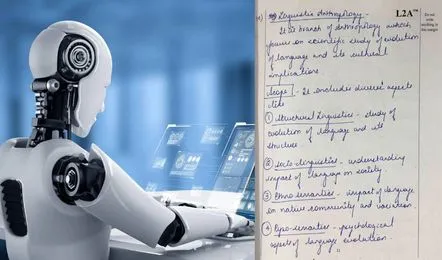 L2A™
Linguistic Anthropology -
It is branch of anthropology which
focuses on scientific study of evolution
of language and its cultural
implications
Scope - It includes diverse aspects
like
① Structural linguistics - study of
evolution of language and its
structure
② Socio-linguistics - understanding
impact of language on society.
③ Ethno semantics - impact of language
on native community and variation.
④ - psychological
aspects of language evolution.